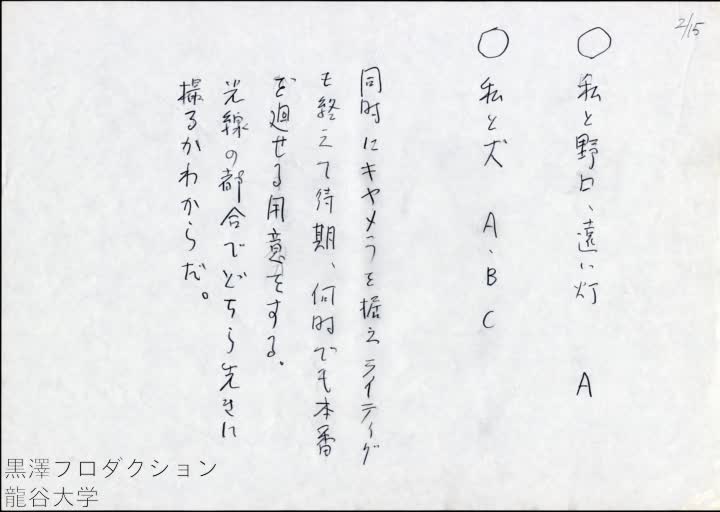 2/15
○ 私と野口、遠い灯 A
○ 私と犬 A、B C
同時にキャメラを据えライティグ
も終えて待期、何時でも本番
を廻せる用意をする。
光線の都合でどちら先きに
撮るかわからだ。
黒澤フロダクション
龍谷大学